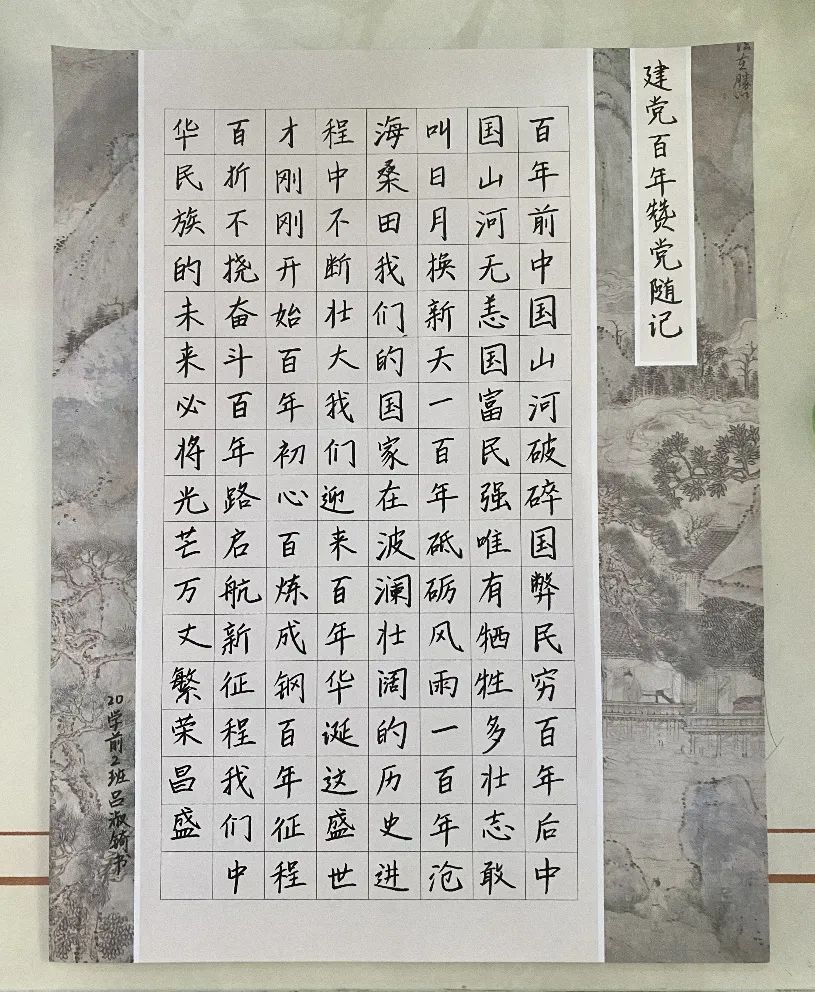 建党百年赞党随记
百年前中国山河破碎国弊民穷百年后中
国山河无恙国富民强唯有牺牲多壮志敢
叫日月换新天一百年砥砺风雨一百年沧
海桑田我们的国家在波澜壮阔的历史进
程中不断壮大我们迎来百年华诞这盛世
才刚刚开始百年初心百炼成钢百年征程
百折不挠奋斗百年路启航新征程我们中
华民族的未来必将光芒万丈繁荣昌盛
20学前2班吕淑锜书